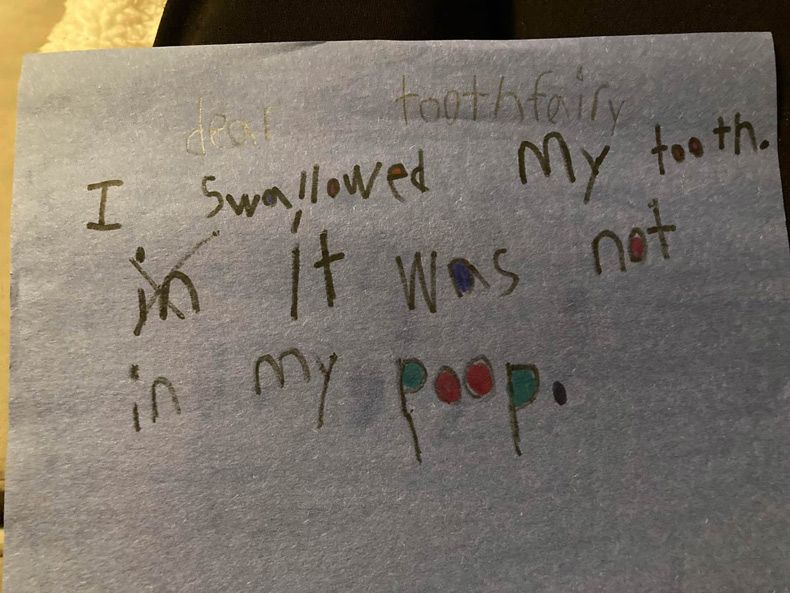 dear toothfairy
I swallowed my tooth.
in it was not
in my poop.